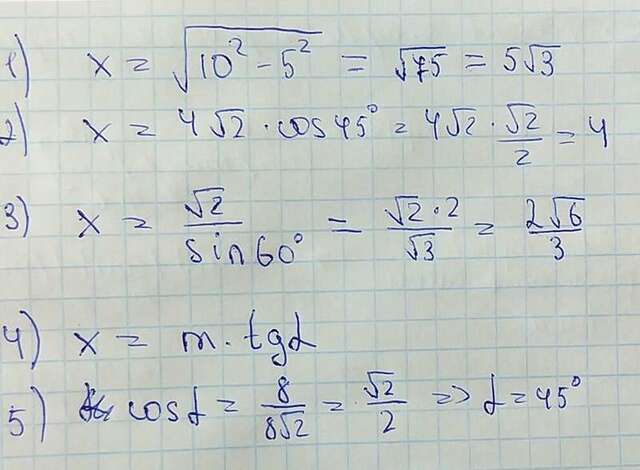 1) x = √(10² - 5²) = √75 = 5√3
2) x = 4√2 · cos 45° = 4√2 · √2/2 = 4
3) x = √2/sin 60° = √2 · 2/√3 = 2√6/3
4) x = m · tg α
5) cos α = 8/8√2 = √2/2 => α = 45°